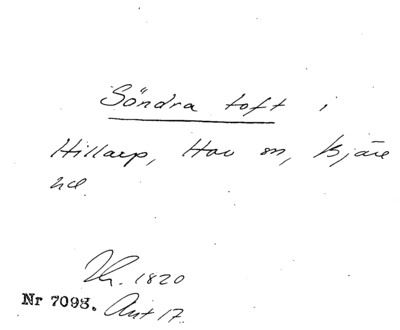 Söndra toft i
Hillarp, Hov sn, Bjäre
hd.
Lh. 1820
Nr 7093. Aut 17